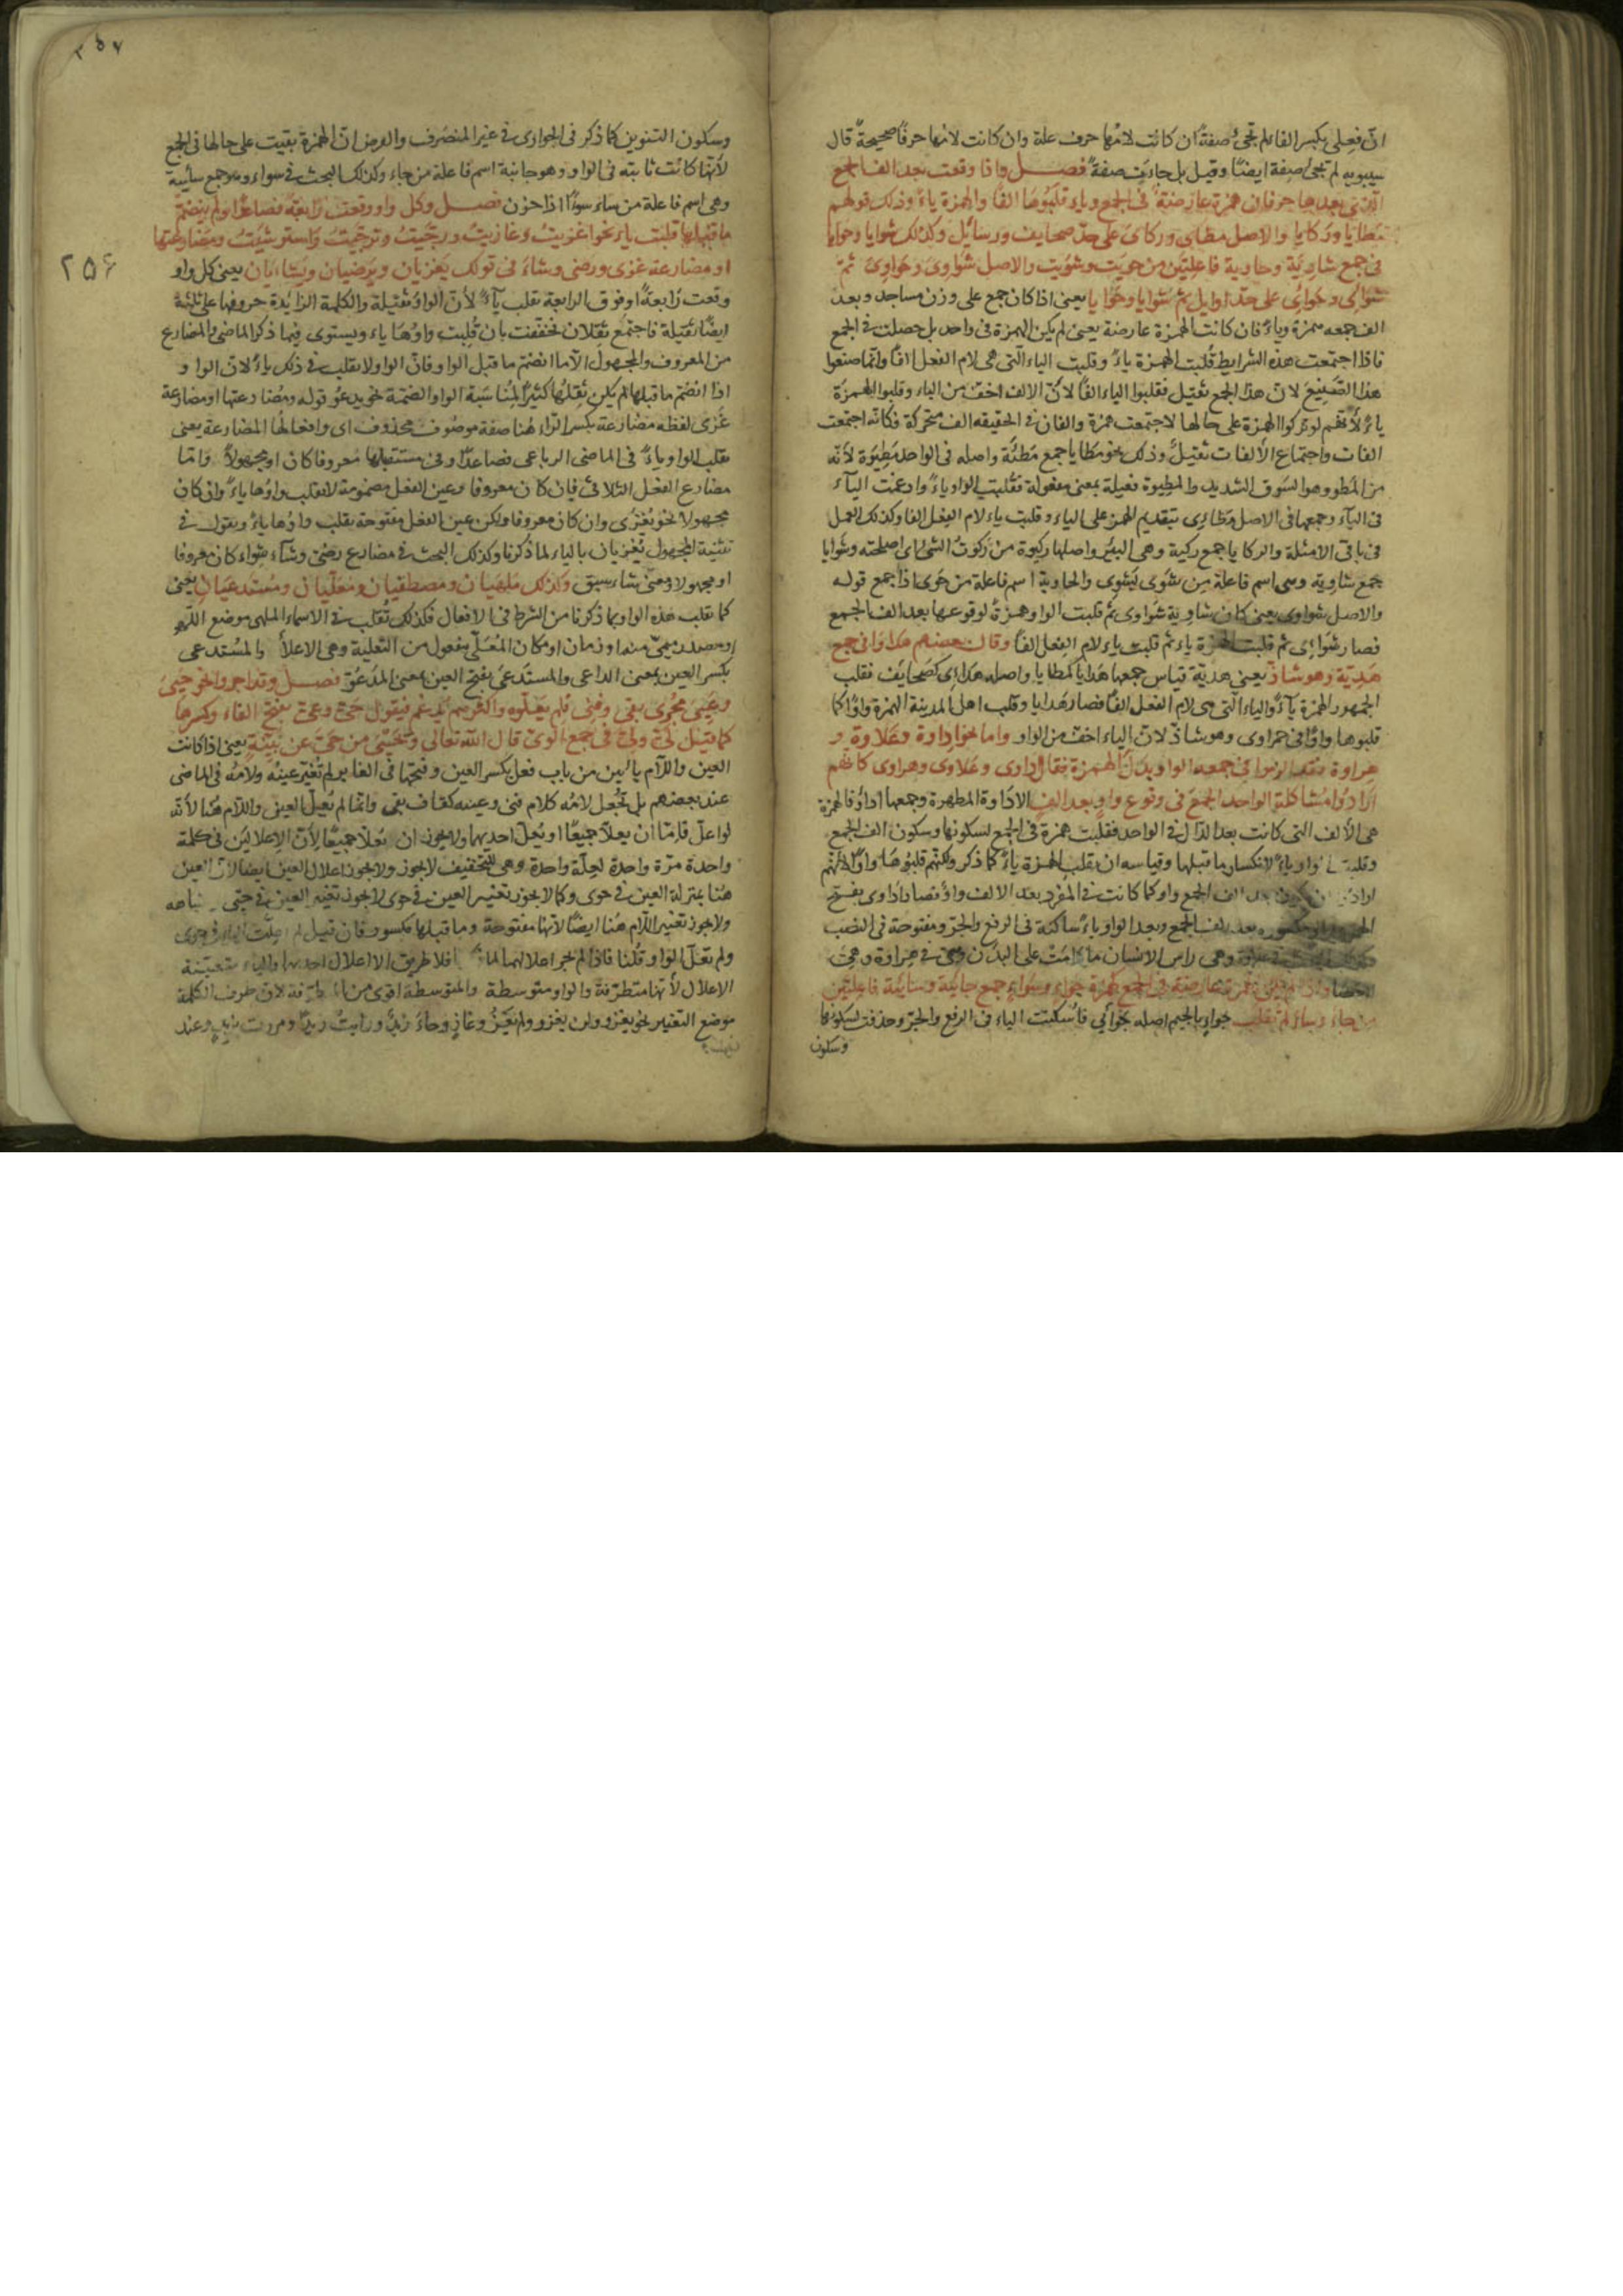 انّ فعلى بكسر الفاء لم تجئ صفةً ان كانت لامها حرف علة وان كانت لامها حرفًا صحيحةً قال
سيبويه لم تجئ صفة ايضًا وقيل بل جاءت صفةً فصل واذا وقعت بعد الف الجمع
الذى بعدها حرفان همزة عارضة فى الجمع وياء قلبوها الفًا والهمزة ياءً وذلك قولهم
مطايا وركايا والاصل مطائى وركائى على حدّ صحايف ورسائل وكذلك شوايا وحوايا
فى جمع شاوية وحاوية فاعلتين من حويت وشويت والاصل شواوى وحواوى ثم
شوائى وحوائى على حدّ اوايل ثم شوايا وحوايا يعنى اذا كان جمع على وزن مساجد وبعد
الف جمعه همزة وياءٌ فان كانت الهمزة عارضة يعنى لم يكن الهمزة فى واحد بل حصلت فى الجمع
فاذا اجتمعت هذه الشرايط قلبت الهمزة ياءً وقلبت الياء التى هى لام الفعل الفًا وانّما صنعوا
هذا الصنيع لانّ هذا الجمع ثقيل فقلبوا الياء الفًا لانّ الالف اخف من الياء وقلبوا الهمزة
ياءً لانّهم لو تركوا الهمزة على حالها لاجتمعت همزة والفان فى الحقيقه الف متحركة فكانّه اجتمعت
الفات واجتماع الألفات ثقيلٌ وذلك نحو مطايا جمع مطيّة واصله فى الواحد مطيوة لأنّه
من المطو وهو السوق الشديد والمطيوة فعيلة بمعنى مفعولة فقلبت الواو ياءً وادغمت الياء
فى الياء وجمعها فى الاصل مطائى بتقديم الهمز على الياء وقلبت ياء لام الفعل الفا وكذلك العمل
فى باقى الامثلة والركايا جمع ركية وهى البئر واصلها ركيوة من ركوت الشئ اى اصلحته وشوايا
جمع شاوية وهى اسم فاعلة من شوى يشوى والحاوية اسم فاعلة من حوى اذا جمع قوله
والاصل شواوى يعنى كان شاوية شواوى ثم قلبت الواو همزةً لوقوعها بعد الف الجمع
فصار شوائى ثم قلبت الهمزة ياء ثم قلبت ياء لام الفعل الفًا وقال بعضهم هداوا فى جمع
هديّة وهو شاذّ يعنى هديّة قياس جمعها هدايا كمطايا واصله هدائى كصحايف فقلب
الجمهور الهمزة ياءً والياء التى هى لام الفعل الفًا فصار هدايا وقلب اهل المدينة الهمزة واوًا كما
قلبوها واوًا فى حمراوى وهو شاذّ لانّ الياء اخفّ من الواو واما نحو اداوة وعلاوة و
هراوة فقد الزموا فى جمعه الواو بدل الهمزة فقالوا اداوى وعلاوى وهراوى كانّهم
ارادوا مشاكلة الواحد الجمع فى وقوع واو بعد الف الاداوة المطهرة وجمعها اداو فالهمزة
هى الألف التى كانت بعد الدال فى الواحد فقلبت همزة فى الجمع لسكونها وسكون الف الجمع
وقلبت الواو ياءً لانكسار ما قبلها وقياسه ان يقلب الهمزة ياءً كما ذكر ولكنّهم قلبوها واوًا لانّهم
ارادوا ان يكون بعد الف الجمع واو كما كانت فى المفرد بعد الالف واوٌ فصار اداوى بفتح
بعد الف الجمع وبعد الواو ياءٌ ساكنة فى الرفع والجرّ ومفتوحة فى النصب
وهى راس الانسان ما دامت على البدن وهى فى هراوة وهى
العصا عارضة فى الجمع كهمزة جواء وسواء جمع جائية وسائية فاعلتين
من جاء وساء لم تقلب جواءٍ بالجيم اصله جوائى فاسكنت الياء فى الرفع والجرّ وحذفت لسكونها
وسكون
٢٥٧
وسكون التنوين كما ذكر فى الجوارى فى غير المنصرف والغرض انّ الهمزة بقيت على حالها فى الجمع
لأنّها كانت ثابته فى الواو وهو جائية اسم فاعلة من جاء وكذلك البحث فى سواء وهو جمع سائية
وهى اسم فاعلة من ساء سوءًا اذا حزن فصل وكل واو وقعت رابعةً فصاعدًا ولم ينضمّ
ما قبلها قلبت ياءً نحو اغزيت وغازيت ورجّيت وترجّيت واسترشيت ومضارعتها
او مضارعة غزى ورضى وشاء فى قولك يغزيان ويرضيان ويشايان يعنى كل واو
٢٥۶
وقعت رابعةً او فوق الرابعة تقلب ياءً لأنّ الواو ثقيلة والكلمة الزايدة حروفها على ثلثة
ايضًا ثقيلة فاجتمع ثقلان فخفّفت بان قلبت واوها ياء ويستوى فيما ذكر الماضى والمضارع
من المعروف والمجهول الّا ما انضم ما قبل الواو فانّ الواو لا يقلب فى ذلك ياءً لانّ الواو و
اذا انضم ما قبلها لم يكن ثقلها كثيرًا لمناسبة الواو والضمّة نحو يدعو قوله ومضارعتها او مضارعة
غزى لفظه مضارعة بكسر الراء هنا صفة موصوف محذوف اى وافعالها المضارعة يعنى
تقلب الواو ياءً فى الماضى الرباعى فصاعدًا وفى مستقبلها معروفا كان او مجهولاً وامّا
مضارع الفعل الثلاثى فان كان معروفا وعين الفعل مضمومة لا تقلب واوها ياءً وان كان
مجهولا نحو يغزى وان كان معروفا ولكن عين الفعل مفتوحة تقلب واوها ياءً ويقول فى
تثنية المجهول يغزيان بالياء لما ذكرنا وكذلك البحث فى مضارع رضى وشاء سواء كان معروفا
او مجهولا ومعنى شاء سبق وكذلك ملهيان ومصطفيان ومعلّيان ومستدعيان يعنى
كما تقلب هذه الواو بما ذكرنا من الشرط فى الافعال فكذلك تقلب فى الاسماء الملهى موضع اللهو
او مصدر ميمىّ منه او زمان او مكان المعلّى مفعول من التعلية وهى الاعلاءُ والمستدعى
بكسر العين بمعنى الداعى والمستدعى بفتح العين بمعنى المدعوّ فصل وقد اجروا نحو حيى
وعيى مجرى بقى وفنى فلم يعلّوه واكثرهم يدغم فيقول حىّ وعىّ بفتح الفاء وكسرها
كما قيل لىّ ولىّ فى جمع الوى قال الله تعالى ويحيى من حىّ عن بيّنة يعنى اذا كانت
العين واللام يائين من باب فعل بكسر العين وفتحها فى الغابر لم تغيّر عينه ولامه فى الماضى
عند بعضهم بل تجعل لامه كلام فنى وعينه كقاف بقى وانّما لم يعلّ العين واللام هنا لأنّه
لو اعلّ فامّا ان يعلّا جميعًا او يعلّ احديهما ولا يجوز ان يعلّا جميعًا لأنّ الإعلالين فى كلمة
واحدة مرّة واحدة لعلّة واحدة وهى للتخفيف لا يجوز ولا يجوز اعلال العين ايضا لانّ العين
هنا بمنزلة العين فى حوى وكما لا يجوز تغيير العين فى حوى لا يجوز تغيير العين فى حيى
ولا يجوز تغيير اللام هنا ايضًا لأنّها مفتوحة وما قبلها مكسور فان قيل لم اعلّت
ولم تعلّ الواو قلنا فاذا لم يجز اعلالهما فلا طريق الا اعلال احديهما والياء متعيّنة
الاعلال لأنّها متطرّفة والواو متوسطة والمتوسطة اقوى من المتطرّفة لانّ طرف الكلمة
موضع التغيير نحو يغزو ولن يغزو ولم يغز وغازٍ وجاء زيدٌ ورأيت زيدًا ومررت بزيدٍ وعند